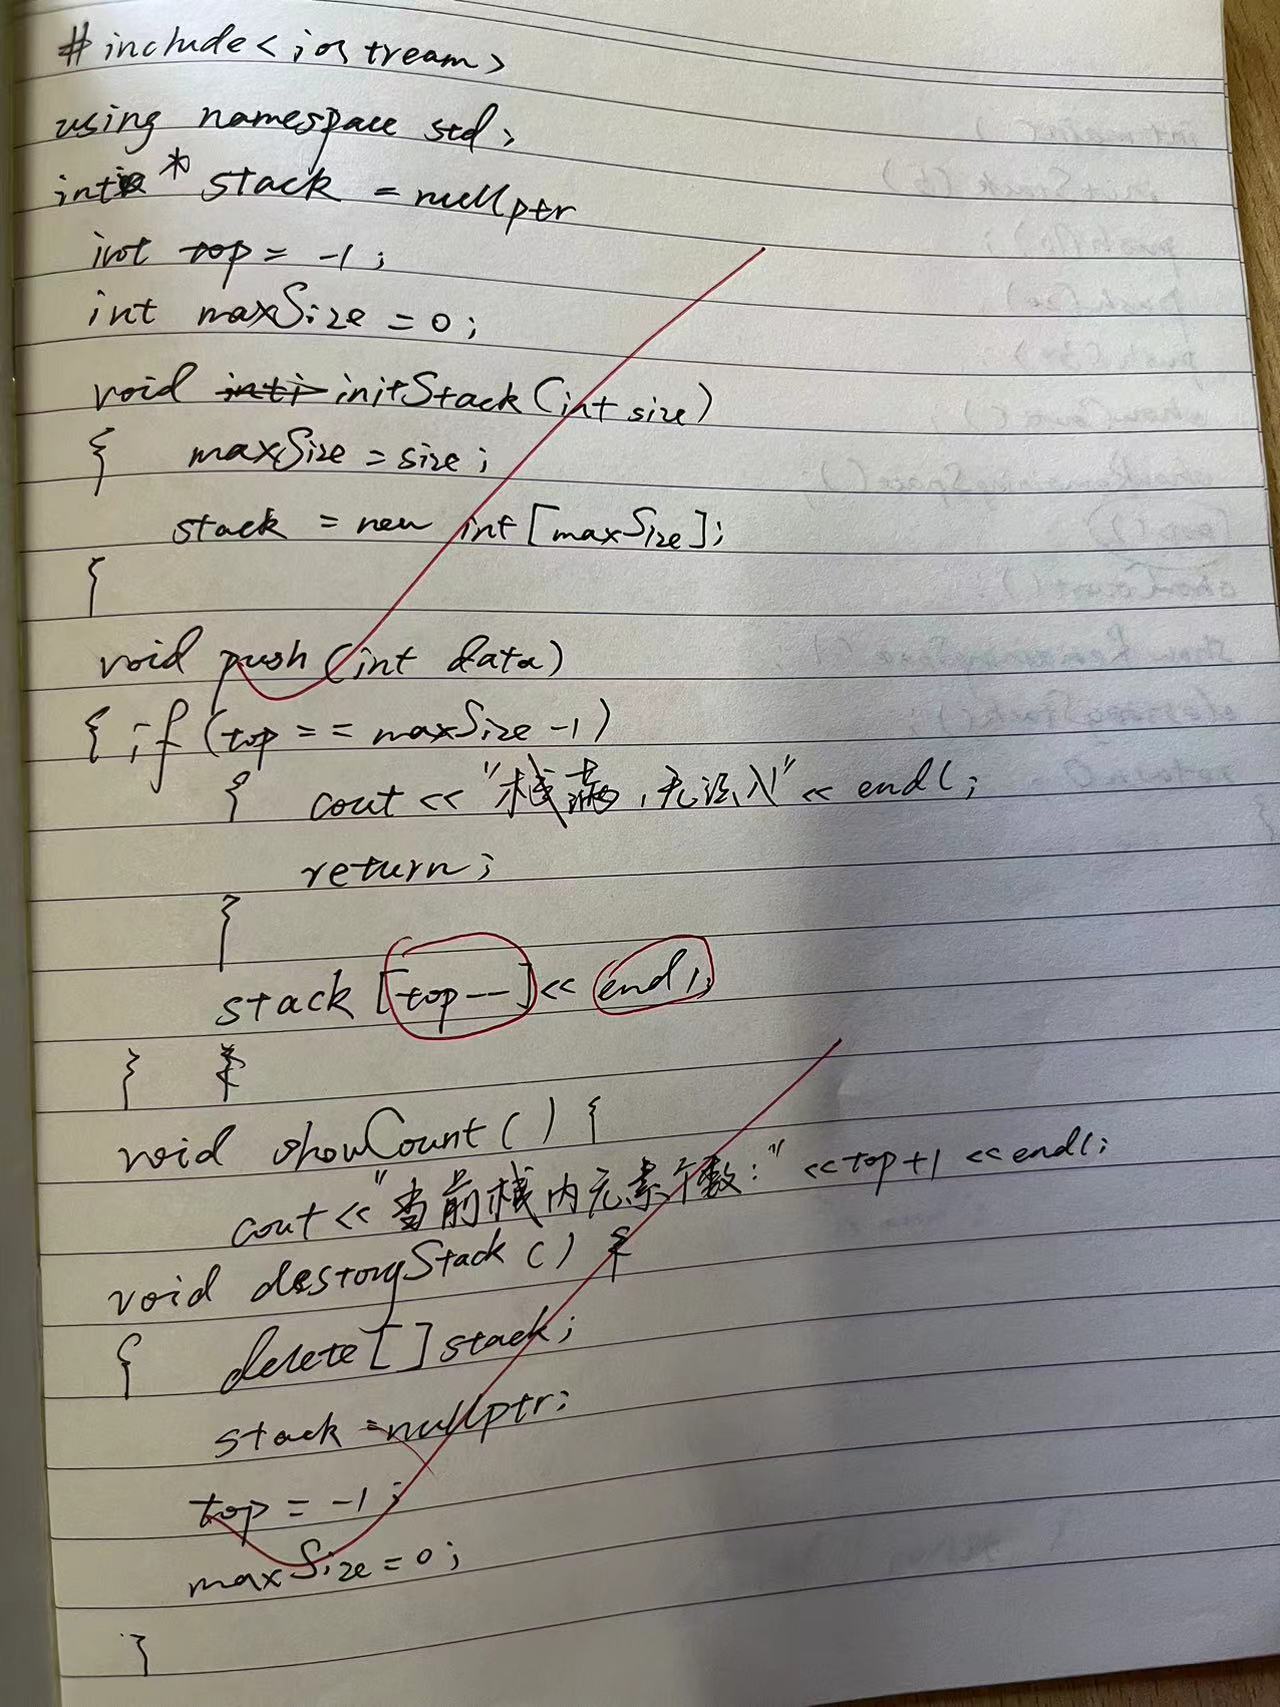 #include<iostream>
using namespace std;
int * stack = nullptr
int top = -1;
int maxSize = 0;
void initStack(int size)
{ maxSize = size;
stack = new int[maxSize];
}
void push(int data)
{ if (top == maxSize -1)
{ cout << "栈满,无法入" << endl;
return;
}
stack [top--] << endl;
}
void showCount() {
cout << "当前栈内元素个数:" << top+1 << endl;
void destorySstack() {
{ delete[] stack;
stack = nullptr;
top = -1;
maxSize = 0;
}